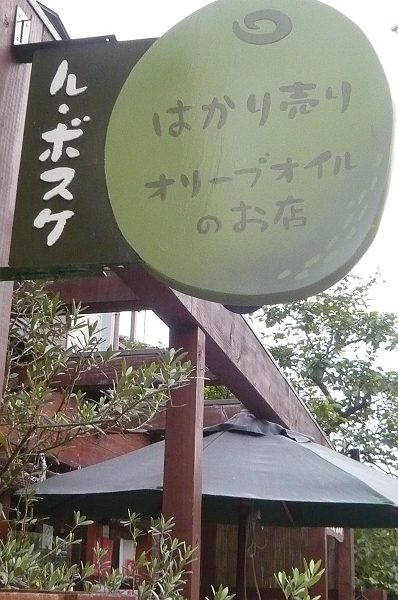 ル・ボスケ
はかり売り
オリーブオイル
のお店